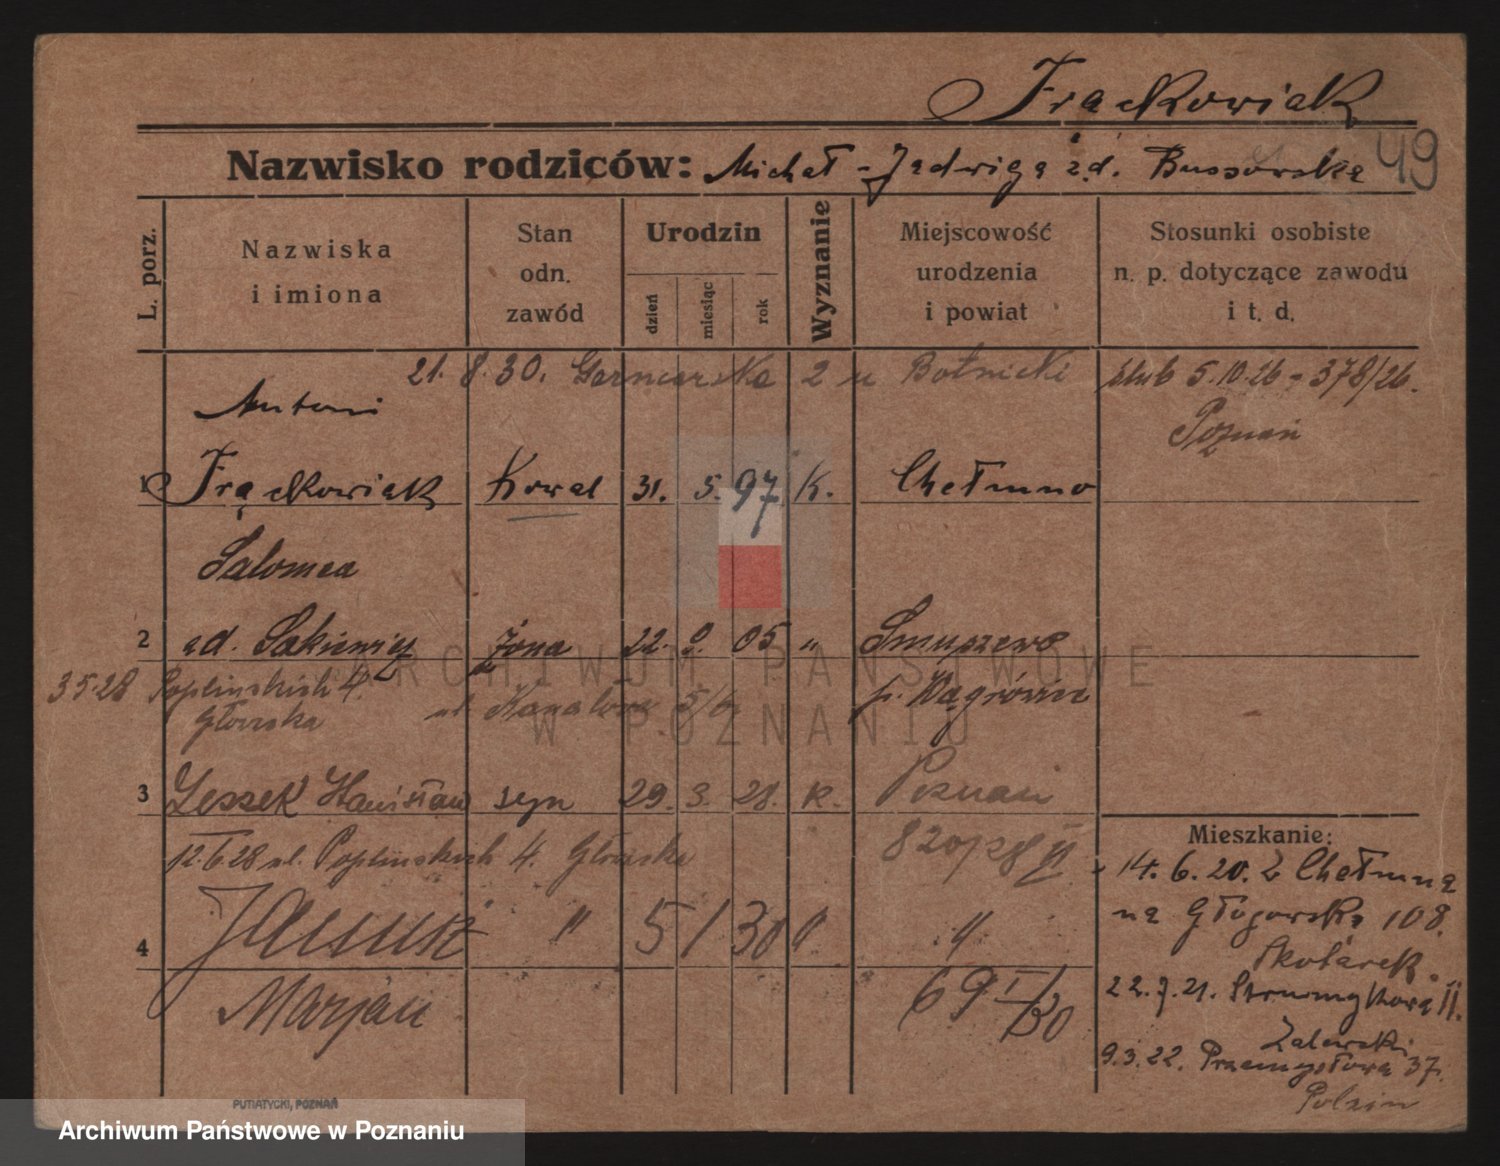 Frąckowiak
Nazwisko rodziców: Michał - Jadwiga z d. Bussowska 49
L. porz.
Nazwiska i imiona
Stan odn. zawód
Urodzin
dzień
miesiąc
rok
Wyznanie
Miejscowość urodzenia i powiat
Stosunki osobiste n. p. dotyczące zawodu i t. d.
21. 8. 30. Garncarska 2 u Botnicki
ślub 5.10.26 - 378/26.
Poznań
Antoni
1 Frąckowiak Kowal 31. 5. 97 K. Chełmno
Salomea
2 zd. Sakiewicz żona 22. 9. 05 " Smuszewo
3 5 28 Poplinskich 4. p. Wągrówiec
Głowska ul. Kanałowa 5/6
3 Leszek Stanisław syn 29. 3. 28. K. Poznań
12.6.28 ul. Poplinskich 4. Głowska 820/28 II
4 Janusz " 5 1 30 " "
Marjan 69 I/30
Mieszkanie:
14. 6. 20. z Chełmna
na Głogowską 108.
Skotarek.
22. 7. 21. Strumykowa 11.
Zalewski
9. 3. 22. Przemysłowa 37.
Polzin
ARCHIWUM PAŃSTWOWE
W POZNANIU
PUTIATYCKI, POZNAŃ
Archiwum Państwowe w Poznaniu